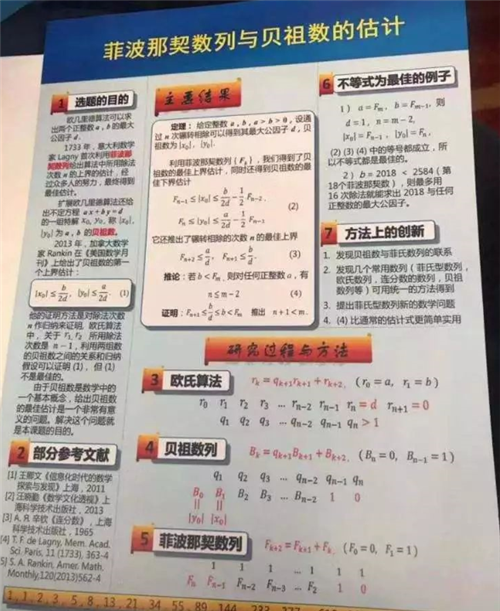 菲波那契数列与贝祖数的估计
1 选题的目的
欧几里德算法可以求
出两个正整数 a, b 的最大
公因子 d。
1733 年，意大利数学
家 Lagny 首次利用菲波那
契数列给出算法中所用除法
次数 n 的上界的估计，经
过众多人的努力，最终得到
最佳估计。
扩展欧几里德算法还给
出不定方程 ax + by = d
的一组特解 x₀, y₀，称 |x₀|,
|y₀| 为 a, b 的贝祖数。
2013 年，加拿大数学
家 Rankin 在《美国数学月
刊》上给出了贝祖数的第一
个上界估计：
|x₀| ≤ b/2d, |y₀| ≤ a/2d (1)
他的证明方法是对除法次数
n 作归纳来证明。欧氏算法
中，关于 r₁, r₂ 所用除法
次数是 n − 1，利用两组数
的贝祖数之间的关系和归纳
假设可以证明 (1)，但 (1)
不是最佳的。
由于贝祖数是数学中的
一个基本概念，给出贝祖数
的最佳估计是一个非常有意
义的问题。解决这个问题就
是本课题的目的。
2 部分参考文献
[1] 王卿文《信息化时代的数学
探索与发现》上海，2011
[2] 汪晓勤《数学文化透视》上
海科学技术出版社，2013
[3] A. Я. 辛钦《连分数》，上海
科学技术出版社，1965
[4] T. F. de Lagny, Mem. Acad.
Sci. Paris, 11 (1733), 363-4
[5] S. A. Rankin, Amer. Math.
Monthly,120(2013)562-4
主要结果
定理：给定整数 a, b, a > b > 0，设通
过 n 次辗转相除可以得到其最大公因子 d，贝
祖数为 |x₀|, |y₀|。
利用菲波那契数列 {Fₖ}，我们得到了贝
祖数的最佳上界估计，同时还得到贝祖数的最
佳下界估计
Fₙ₋₁ ≤ |x₀| ≤ b/2d − 1/2 Fₙ₋₂,
(2)
Fₙ ≤ |y₀| ≤ a/2d − 1/2 Fₙ₋₁.
它还推出了辗转相除的次数 n 的最佳上界
Fₙ₊₂ ≤ a/d, Fₙ₊₁ ≤ b/d. (3)
推论：若 b < Fₘ，则对任何正整数 a，有
n ≤ m − 2 (4)
证明：Fₙ₊₁ ≤ b/d ≤ b < Fₘ 推出 n + 1 < m.
研究过程与方法
3 欧氏算法 rₖ = qₖ₊₁rₖ₊₁ + rₖ₊₂, (r₀ = a, r₁ = b)
r₀ r₁ r₂ r₃ ... rₙ₋₂ rₙ₋₁ rₙ = d rₙ₊₁ = 0
q₁ q₂ q₃ ... qₙ₋₂ qₙ₋₁ qₙ > 1
4 贝祖数列 Bₖ = qₖ₊₁Bₖ₊₁ + Bₖ₊₂, (Bₙ = 0, Bₙ₋₁ = 1)
q₁ q₂ q₃ ... qₙ₋₂ qₙ₋₁ qₙ
B₀ B₁ B₂ B₃ ... Bₙ₋₂ 1 0
|| ||
|y₀| |x₀|
5 菲波那契数列 Fₖ₊₂ = Fₖ₊₁ + Fₖ, (F₀ = 0, F₁ = 1)
1 1 1 ... 1 1 1
Fₙ Fₙ₋₁ Fₙ₋₂ Fₙ₋₃ ... F₂ 1 0
6 不等式为最佳的例子
1) a = Fₘ, b = Fₘ₋₁, 则
d = 1, n = m − 2,
|x₀| = Fₙ₋₁, |y₀| = Fₙ.
(2) (3) (4) 中的等号都成立，所
以不等式都是最佳的。
2) b = 2018 < 2584 (第
18个菲波那契数)，则最多用
16 次除法就能求出 2018 与任何
正整数的最大公因子。
7 方法上的创新
1. 发现贝祖数与菲氏数列的联系
2. 发现几个常用数列 (菲氏型数列，
欧氏数列，连分数的数列，贝祖
数列等) 可用统一的方法得到
3. 提出菲氏型数列新的数学问题
4. (4) 比通常的估计式更简单实用
1, 1, 2, 3, 5, 8, 13, 21, 34, 55, 89, 144, 233